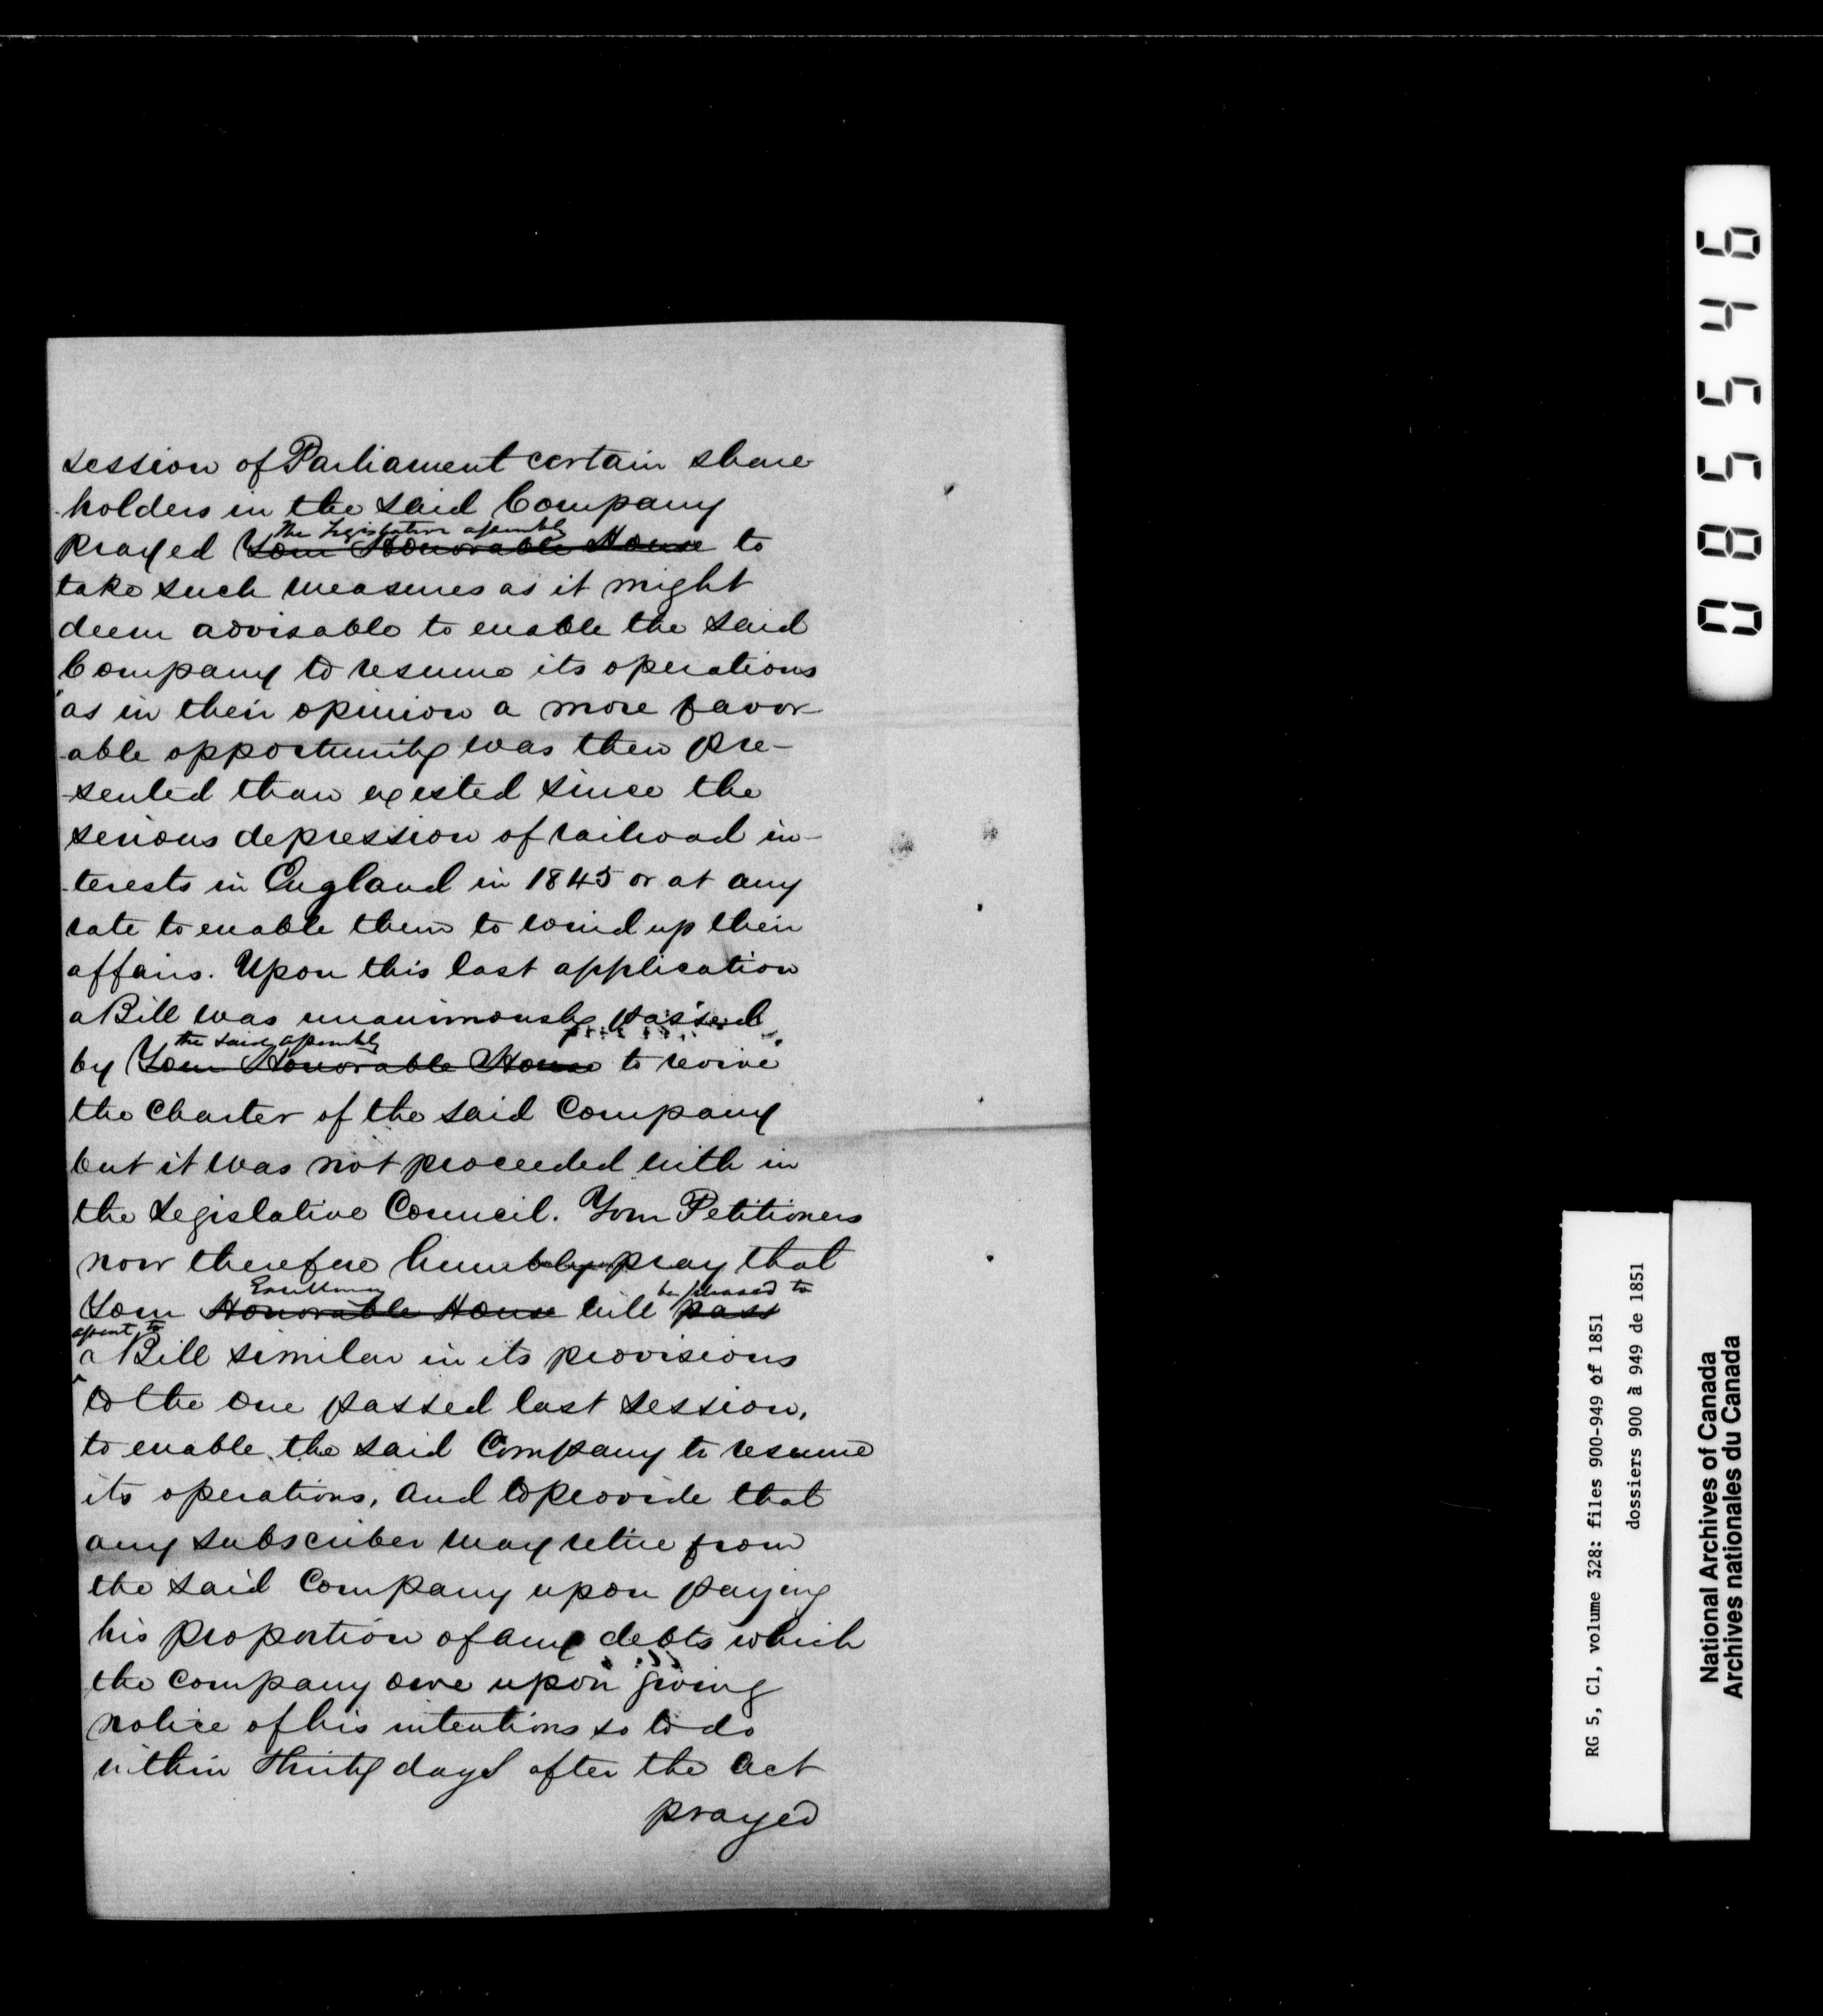 session of Parliament certain share
-holders in the said Company
The Legislative assembly
prayed Your Honorable House to
take such measures as it might
deem advisable to enable the said
Company to resume its operations
as in their opinion a more favor-
able opportunity was then pre-
-sented than existed since the
serious depression of railroad in-
-terests in England in 1845 or at any
rate to enable them to wind up their
affairs. Upon this last application
a Bill was unanimously passed
the said assembly
by Your Honorable House to revive
the Charter of the said Company
but it was not proceeded with in
the Legislative Council. Your Petitioners
now therefore humbly pray that
Excellency be pleased to
Your Honorable House will pass
assent to
a Bill similar in its provisions
to the one passed last session,
to enable the said Company to resume
its operations, and to provide that
any subscriber may retire from
the said Company upon paying
his proportion of any debts which
the company owe upon giving
notice of his intentions so to do
within thirty days after the Act
prayed
085546
RG 5, C1, volume 328: files 900-949 of 1851
dossiers 900 à 949 de 1851
National Archives of Canada
Archives nationales du Canada